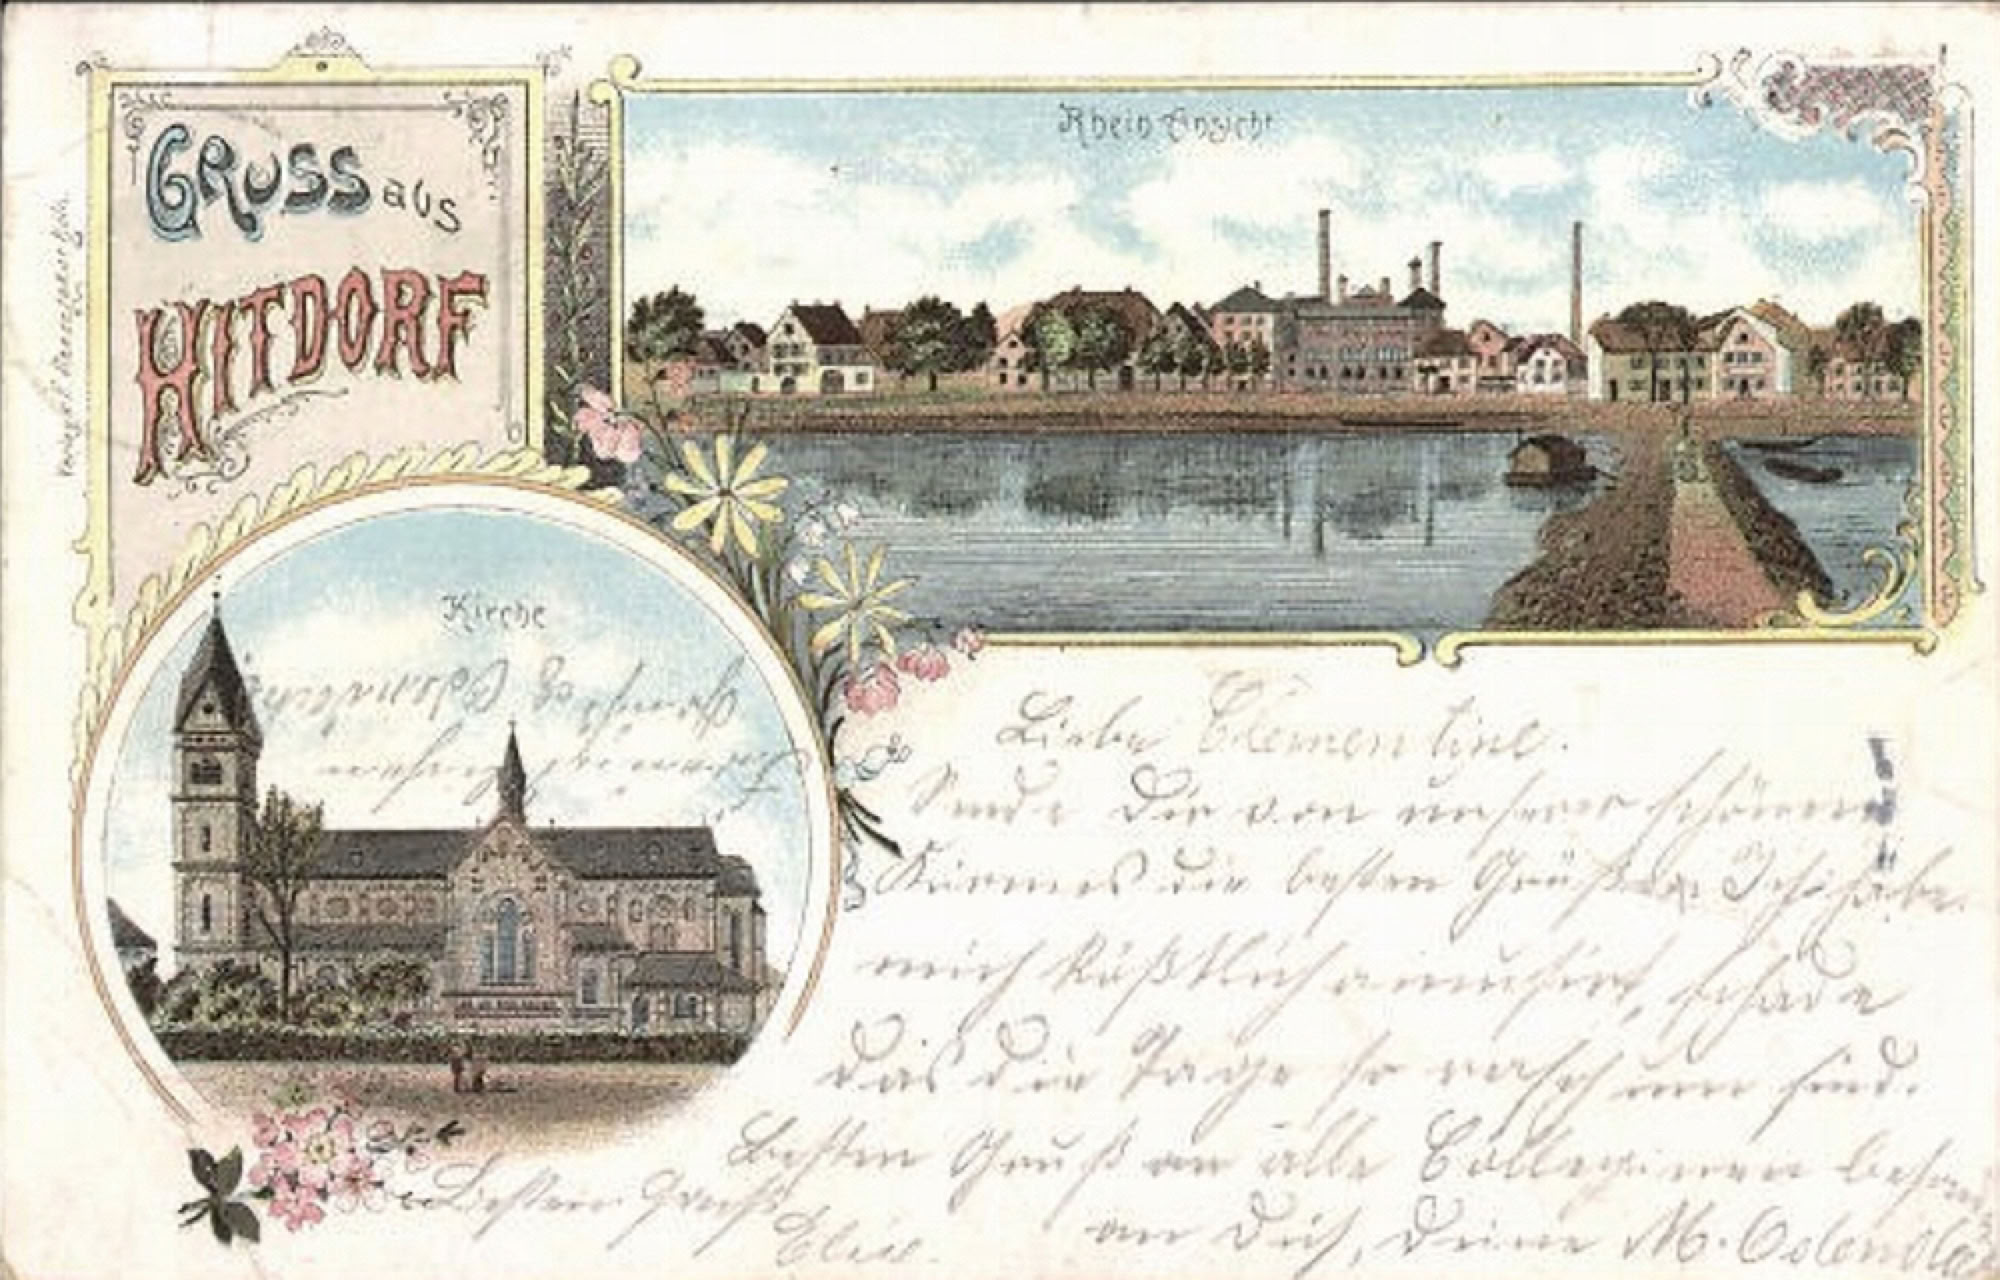 GRUSS aus
HITDORF
Rhein Ansicht
Kirche
Liebe Clementine.
Sende Dir von unserer schönen
Kirmes die besten Grüße. Ich habe
mich köstlich amusirt, schade
das die Tage so rasch um sind.
Besten Gruß an alle Colleginnen
an Dich, Deine M.
Besten Gruß
Elise.